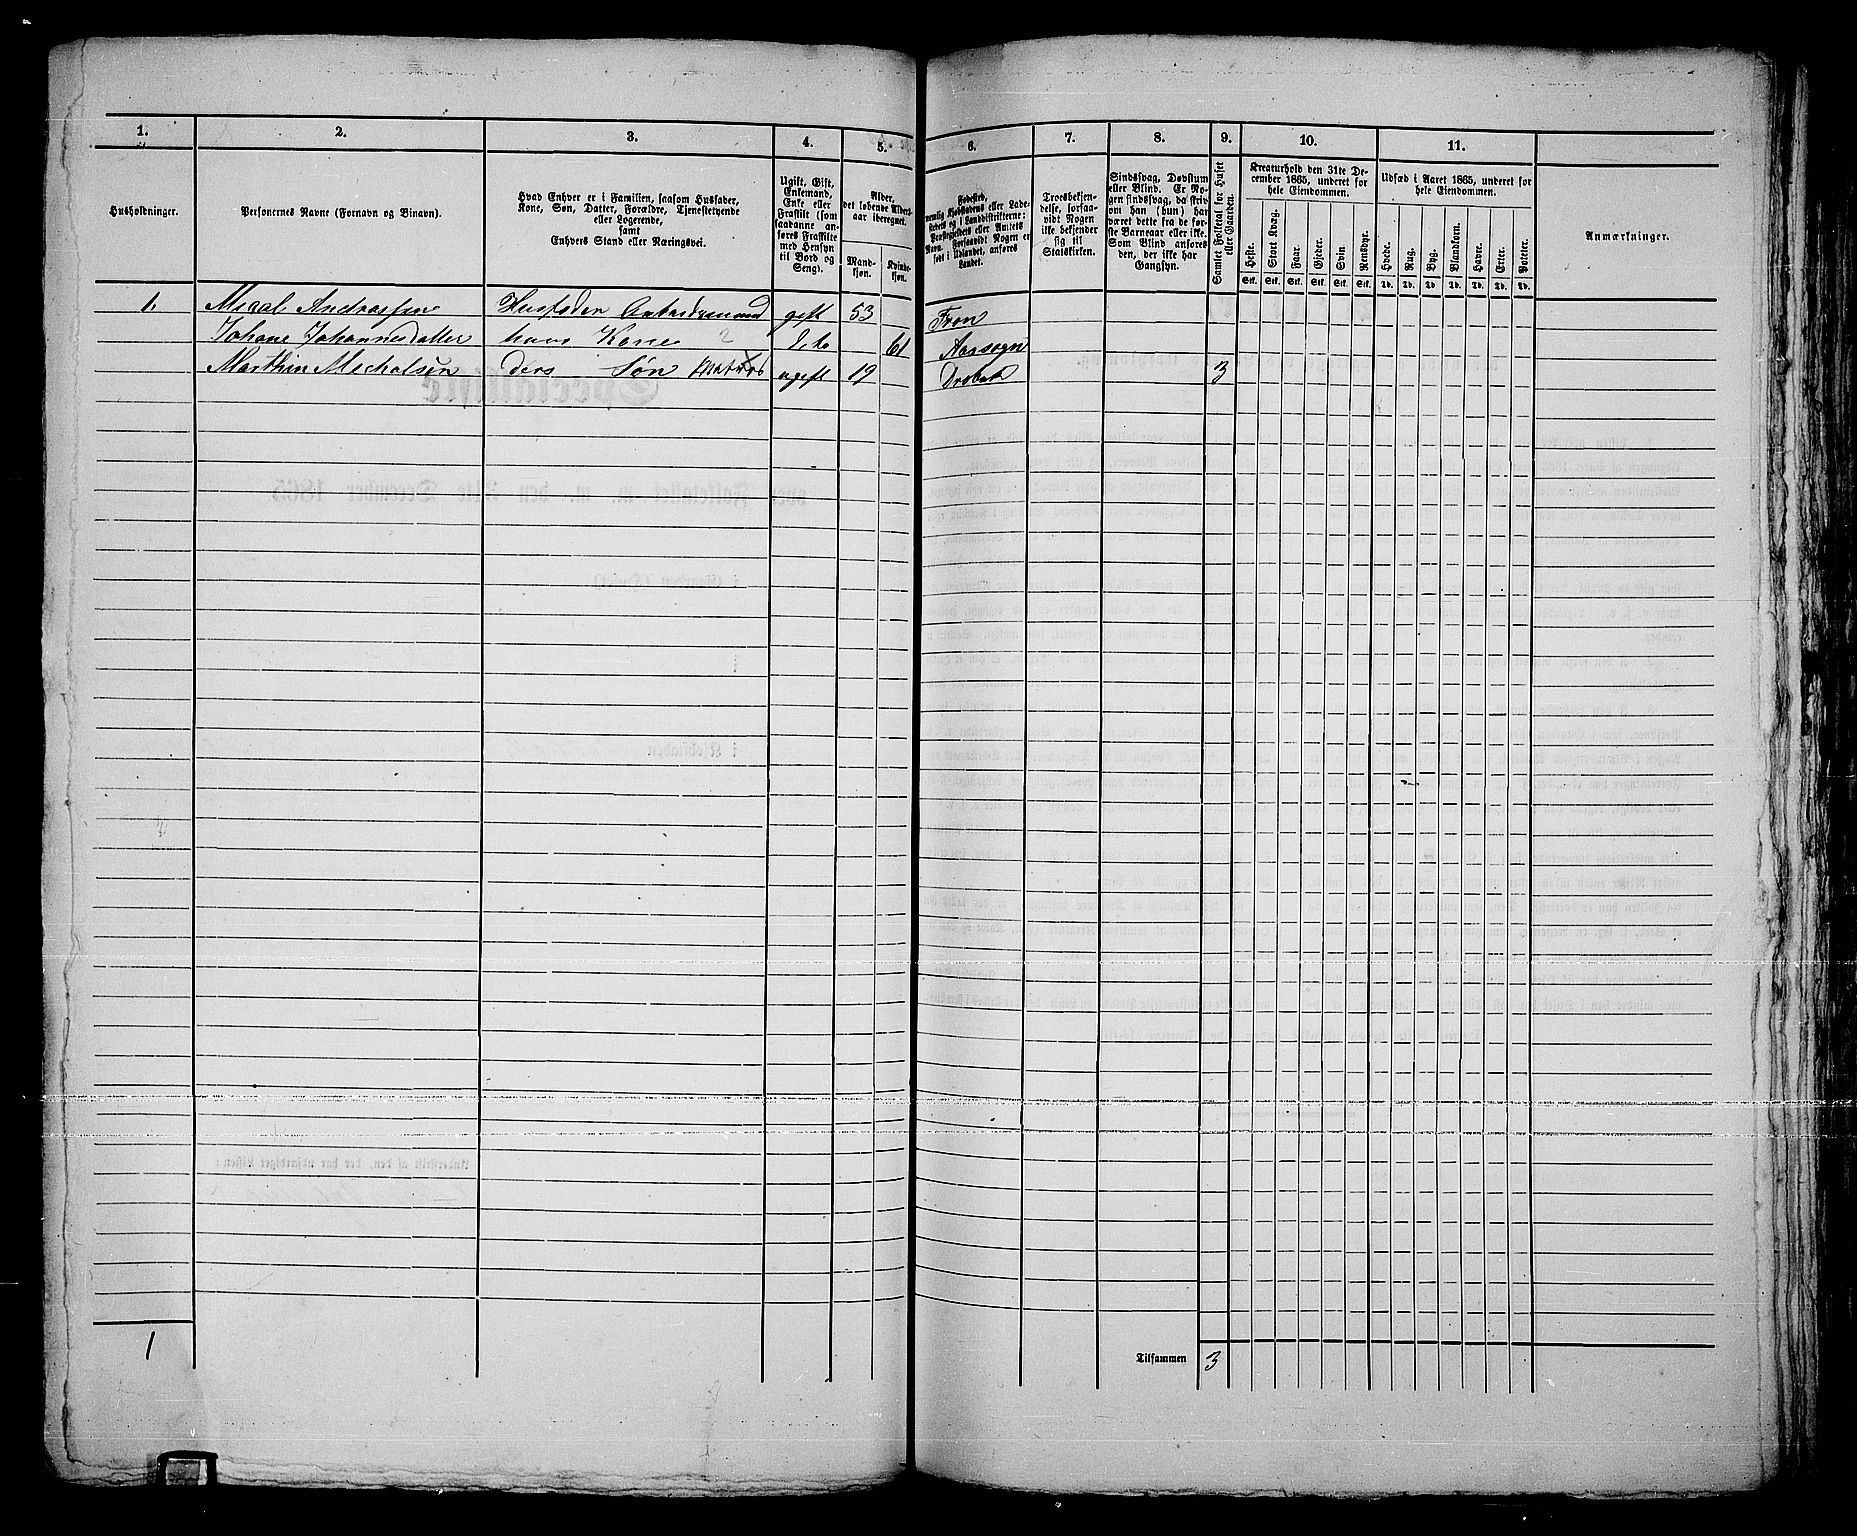 1. 2. 3. 4. 5. 6. 7. 8. 9. 10. 11.
Husholdninger.
Personernes Navne (Fornavn og Binavn).
Hvad Enhver er i Familien, saasom Husfader,
Kone, Søn, Datter, Forældre, Tjenestetyende
eller Logerende,
samt
Enhvers Stand eller Næringsvei.
Ugift, Gift,
Enkemand,
Enke eller
Fraskilt (som
saadanne an-
føres Fraskilte
med Hensyn
til Bord og
Seng).
Alder,
det løbende Alders-
aar iberegnet.
Mand-
kjøn.
Kvinde-
kjøn.
Fødested,
nemlig Kjøbstadens eller Lade-
stedets og i Landdistrikterne:
Præstegjeldets eller Amtets
Navn. Forsaavidt Nogen er
født i Udlandet, anføres
Landet.
Troesbekjen-
delse, forsaa-
vidt Nogen
ikke bekjender
sig til
Statskirken.
Sindssvag, Døvstum
eller Blind. Er No-
gen sindssvag, da skriv
om han (hun) har
været dette fra de før-
ste Barneaar eller ikke.
Som Blind anføres
den, der ikke har
Gangsyn.
Samlet Folketal for Huset
eller Gaarden.
Kreaturhold den 31te De-
cember 1865, underet for
hele Eiendommen.
Heste. Stort Kvæg. Faar. Gjeder. Svin. Rensdyr.
Stk. Stk. Stk. Stk. Stk. Stk.
Udsæd i Aaret 1865, underet for
hele Eiendommen.
Hvede. Rug. Byg. Blandkorn. Havre. Erter. Poteter.
Td. Td. Td. Td. Td. Td. Td.
Anmærkninger.
1. Andreassen Husfader gift 53 Fron
Johane Johannesdatter hans Kone 2 Do 61 Aassogn
Marthin Mecholsen ders Søn Matros ugift 19 Drøbak 3
1 Tilsammen 3